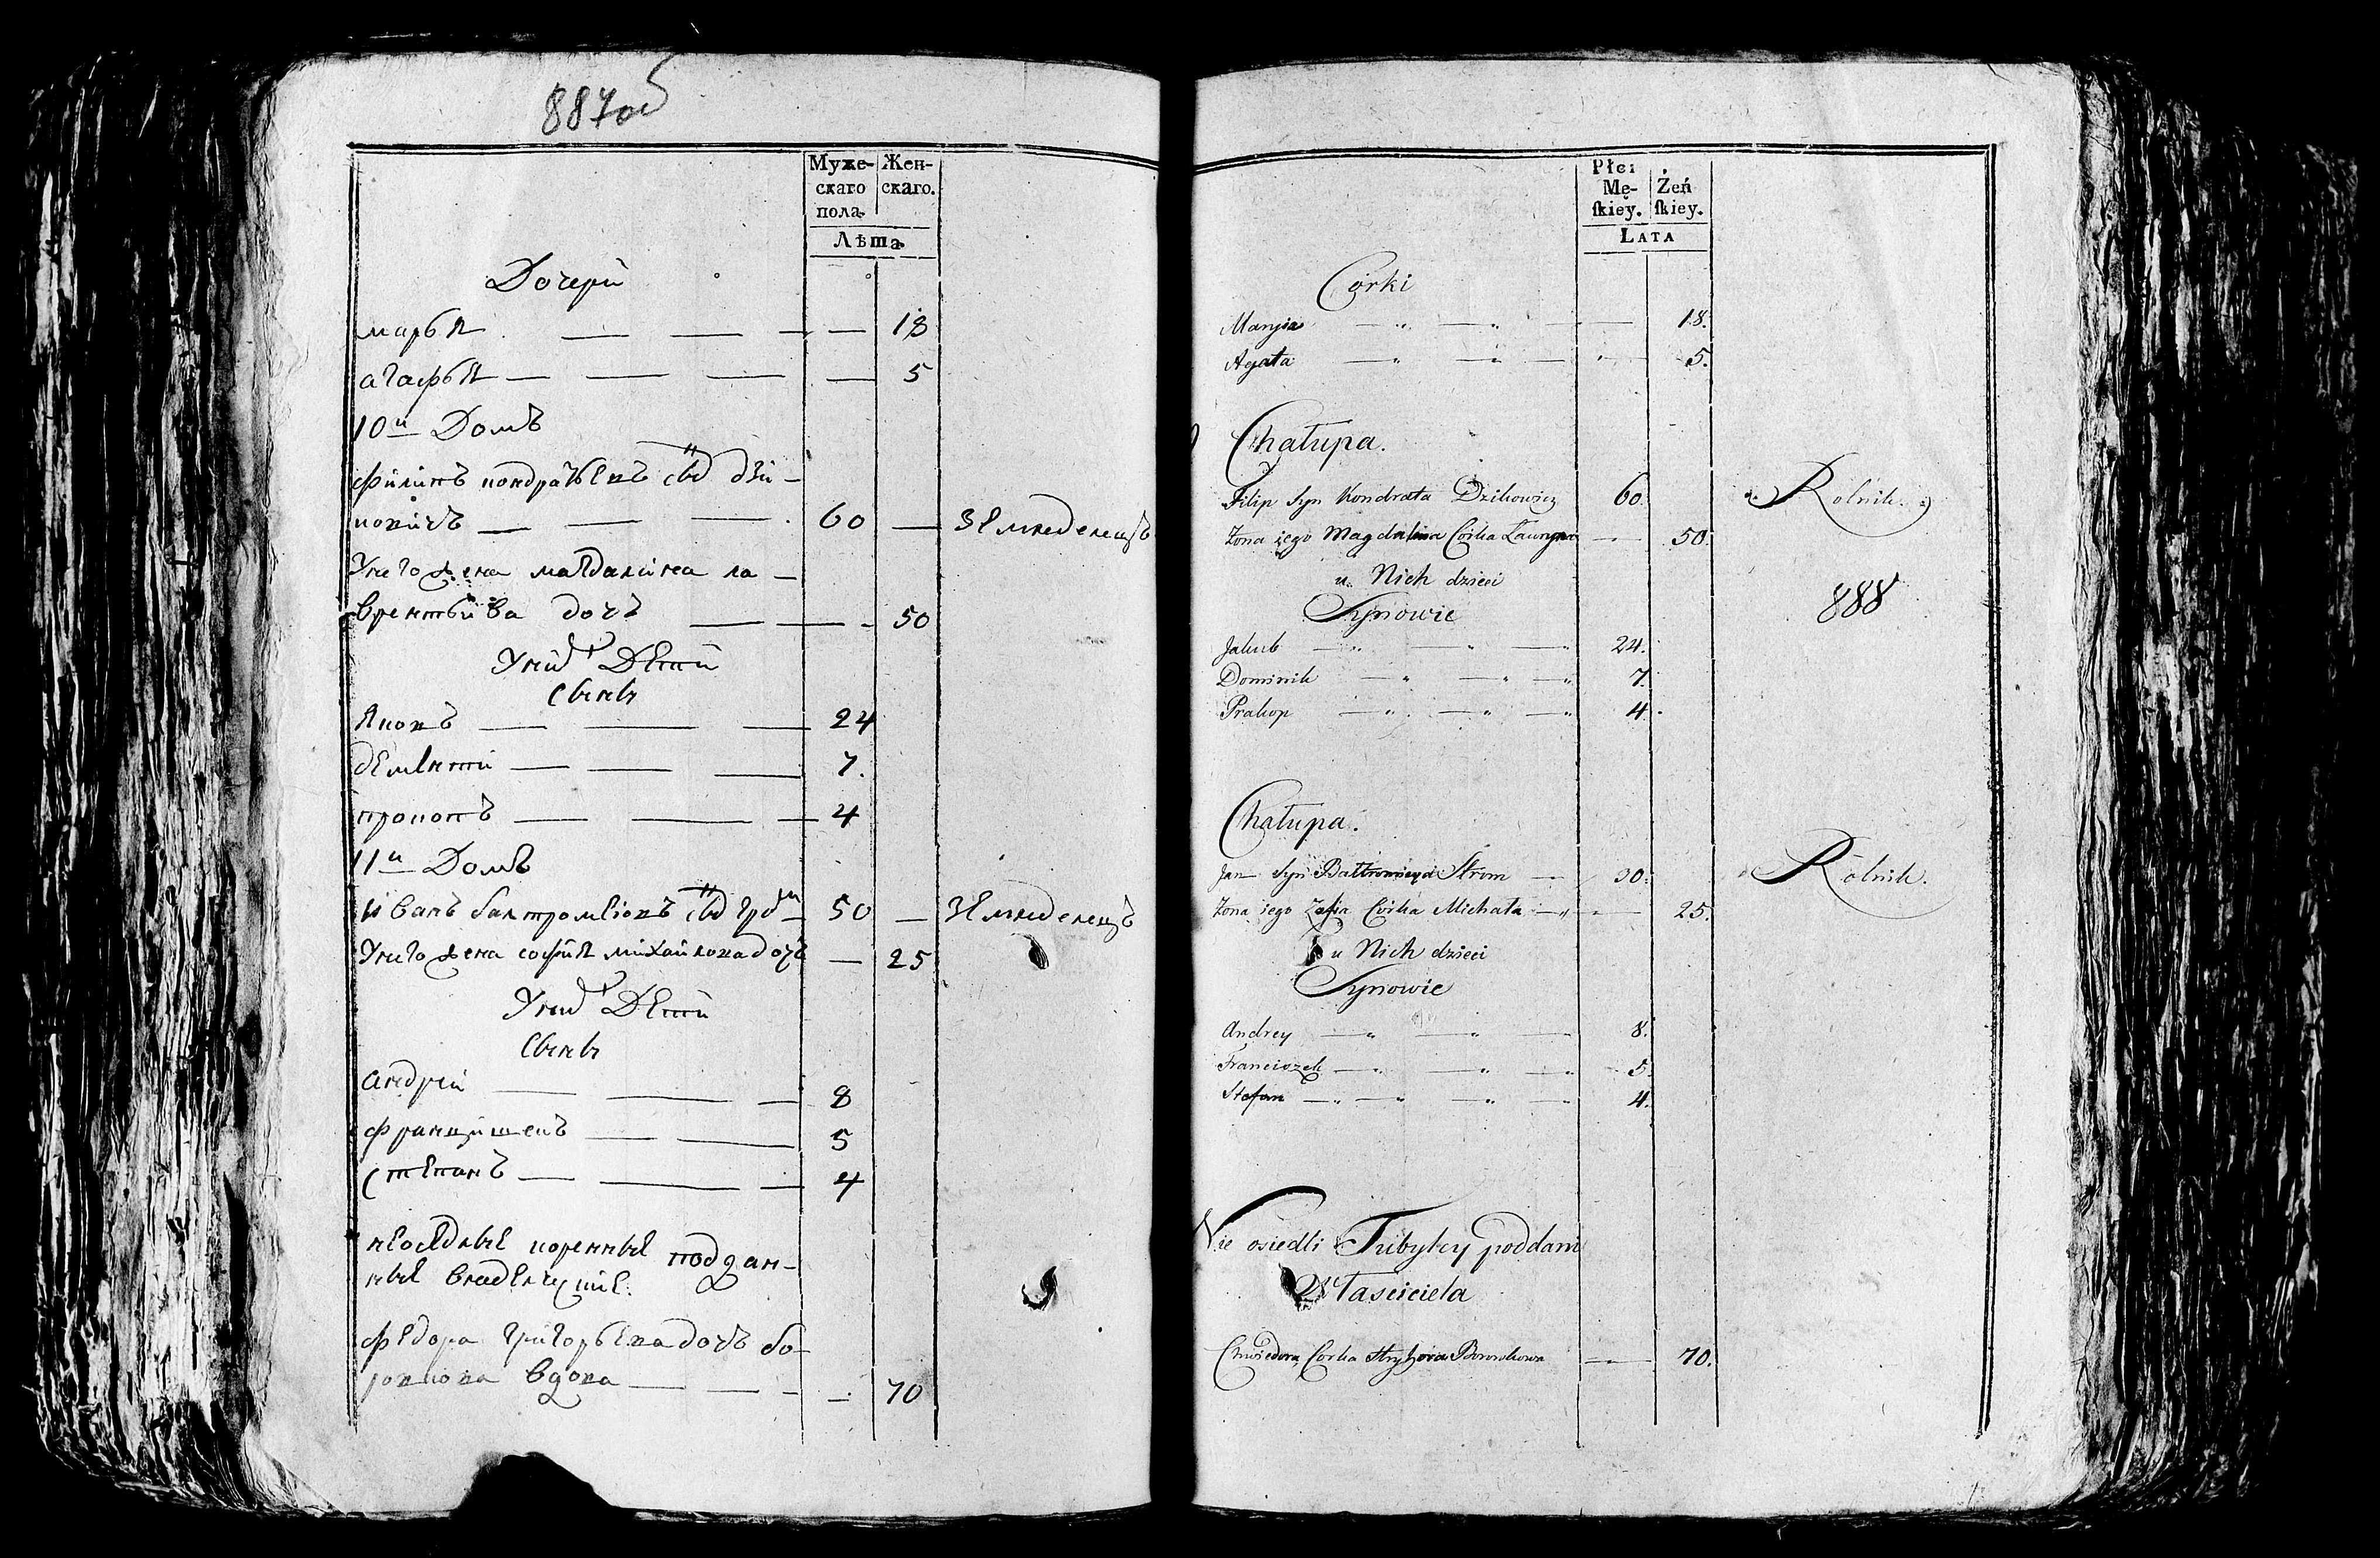 887об
Муже- Жен-
скаго скаго.
пола.
Лѣта.
Дочери
марья — — — — 18
агафья — — — — 5
10й Домъ
филипъ кондратьевъ сынъ дзи-
ковичъ — — — 60 — Земледелецъ
У него жена магдалина ла-
врентьива дочъ — — — 50
У них Дети
Сыны
Яковъ — — — 24
дементи — — — 7.
прокопъ — — — 4
11й Домъ
иванъ балтромеiовъ сынъ 50 — Земледелецъ
У него жена софия михайлова дочъ — 25
У них Дети
Сыны
андрей — — — 8
францишекъ — — 5
степанъ — — — 4
неоседлые коренные поддан-
ные владелчуские.
федора григорьева дочъ бо-
ровкова вдова — — — — 70
Płci
Mę- Żeń
skiey. skiey.
LATA
Corki
Maryia — — — 18.
Agata — — — 5.
Chałupa.
Filip Syn Kondrata Dzikowicz 60. Rolnik.
Żona iego Magdalina Corka Ławryna — 50.
u Nich dzieci
888
Synowie
Jakub — — — 24.
Dominik — — — 7.
Prakop — — — 4.
Chałupa.
Jan Syn Bałtromieya Strom — 30. Rolnik.
Żona iego Zofia Corka Michała — — 25.
u Nich dzieci
Synowie
Andrey — — — 8.
Franciszek — — — 5.
Stefan — — — 4.
Nie osiedli Tubylcy poddani
Właściciela
Chwiedora Corka Hryhora Borowkowa — 70.